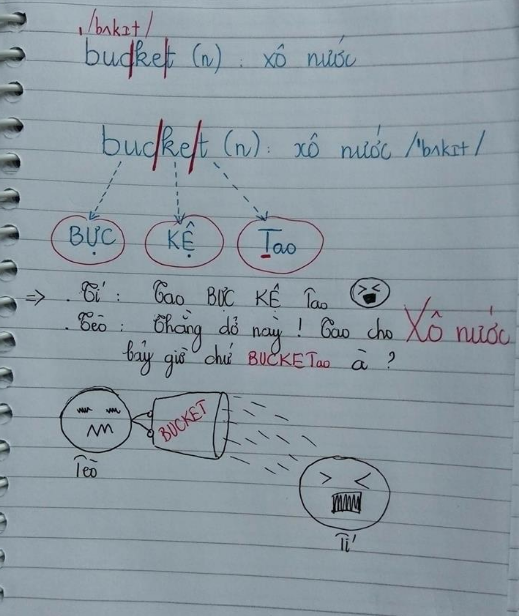 /bʌkɪt/
bucket (n) : xô nước
bucket (n) : xô nước /'bʌkɪt/
BỰC KỆ Tao
=> . Tí : Tao BỰC KỆ Tao
. Tèo : Thằng dở này ! Tao cho Xô nước
bây giờ chứ BUCKETao à ?
BUCKET
Tèo
Tí